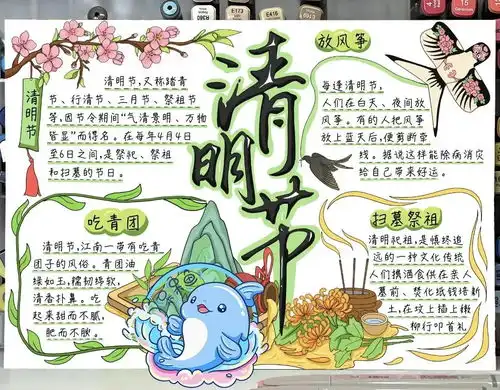 清明节
清明节
清明节,又称踏青
节、行清节、三月节、祭祖节
等,因节令期间“气清景明、万物
皆显”而得名。在每年4月4日
至6日之间,是祭祀、祭祖
和扫墓的节日。
放风筝
每逢清明节,
人们在白天、夜间放
风筝。有的人把风筝
放上蓝天后,便剪断牵
线。据说这样能除病消灾
给自己带来好运。
吃青团
清明节,江南一带有吃青
团子的风俗。青团油
绿如玉,糯韧绵软,
清香扑鼻。吃
起来甜而不腻,
肥而不腴。
扫墓祭祖
清明祀祖,是慎终追
远的一种文化传统
人们携酒食供在亲人
墓前、焚化纸钱培新
土,在坟上插上嫩
柳行叩首礼
E123
E416
15